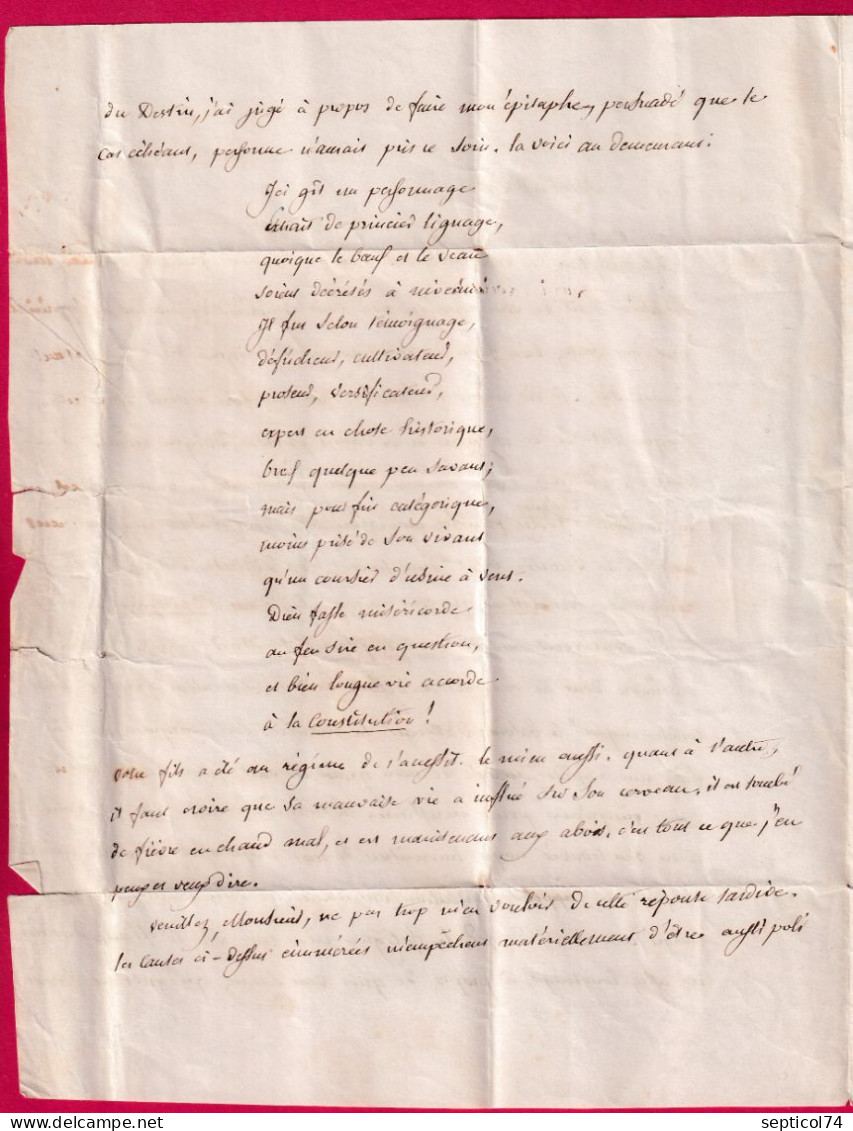 du Destin, j'ai jugé à propos de faire mon épitaphe, persuadé que le
cas échéant, personne n'aurait pris ce soin. la voici au demeurant:
Ici gît un personnage
extrait de princier lignage,
quoique le bœuf et le veau
soient décrétés à
Il fut selon témoignage,
défricheur, cultivateur,
prosteur, versificateur,
expert en chose historique,
bref quelque peu savant;
mais pour fin catégorique,
moins prisé de son vivant
qu'un coursier d'usine à vent.
Dieu fasse miséricorde
au feu sire en question,
et bien longue vie accorde
à la Constitution!
votre fils a été au régime de s'aussit. le mien aussi. quant à l'autre,
il faut croire que sa mauvaise vie a influé sur son cerveau, il est tombé
de fièvre en chaud mal, et est maintenant aux abois, c'en tout ce que j'en
peux et veux dire.
veuillez, Monsieur, ne pas trop m'en vouloir de cette réponse tardive.
les causes ci-dessus énumérées m'empêchent matériellement d'être aussi poli
septicol74